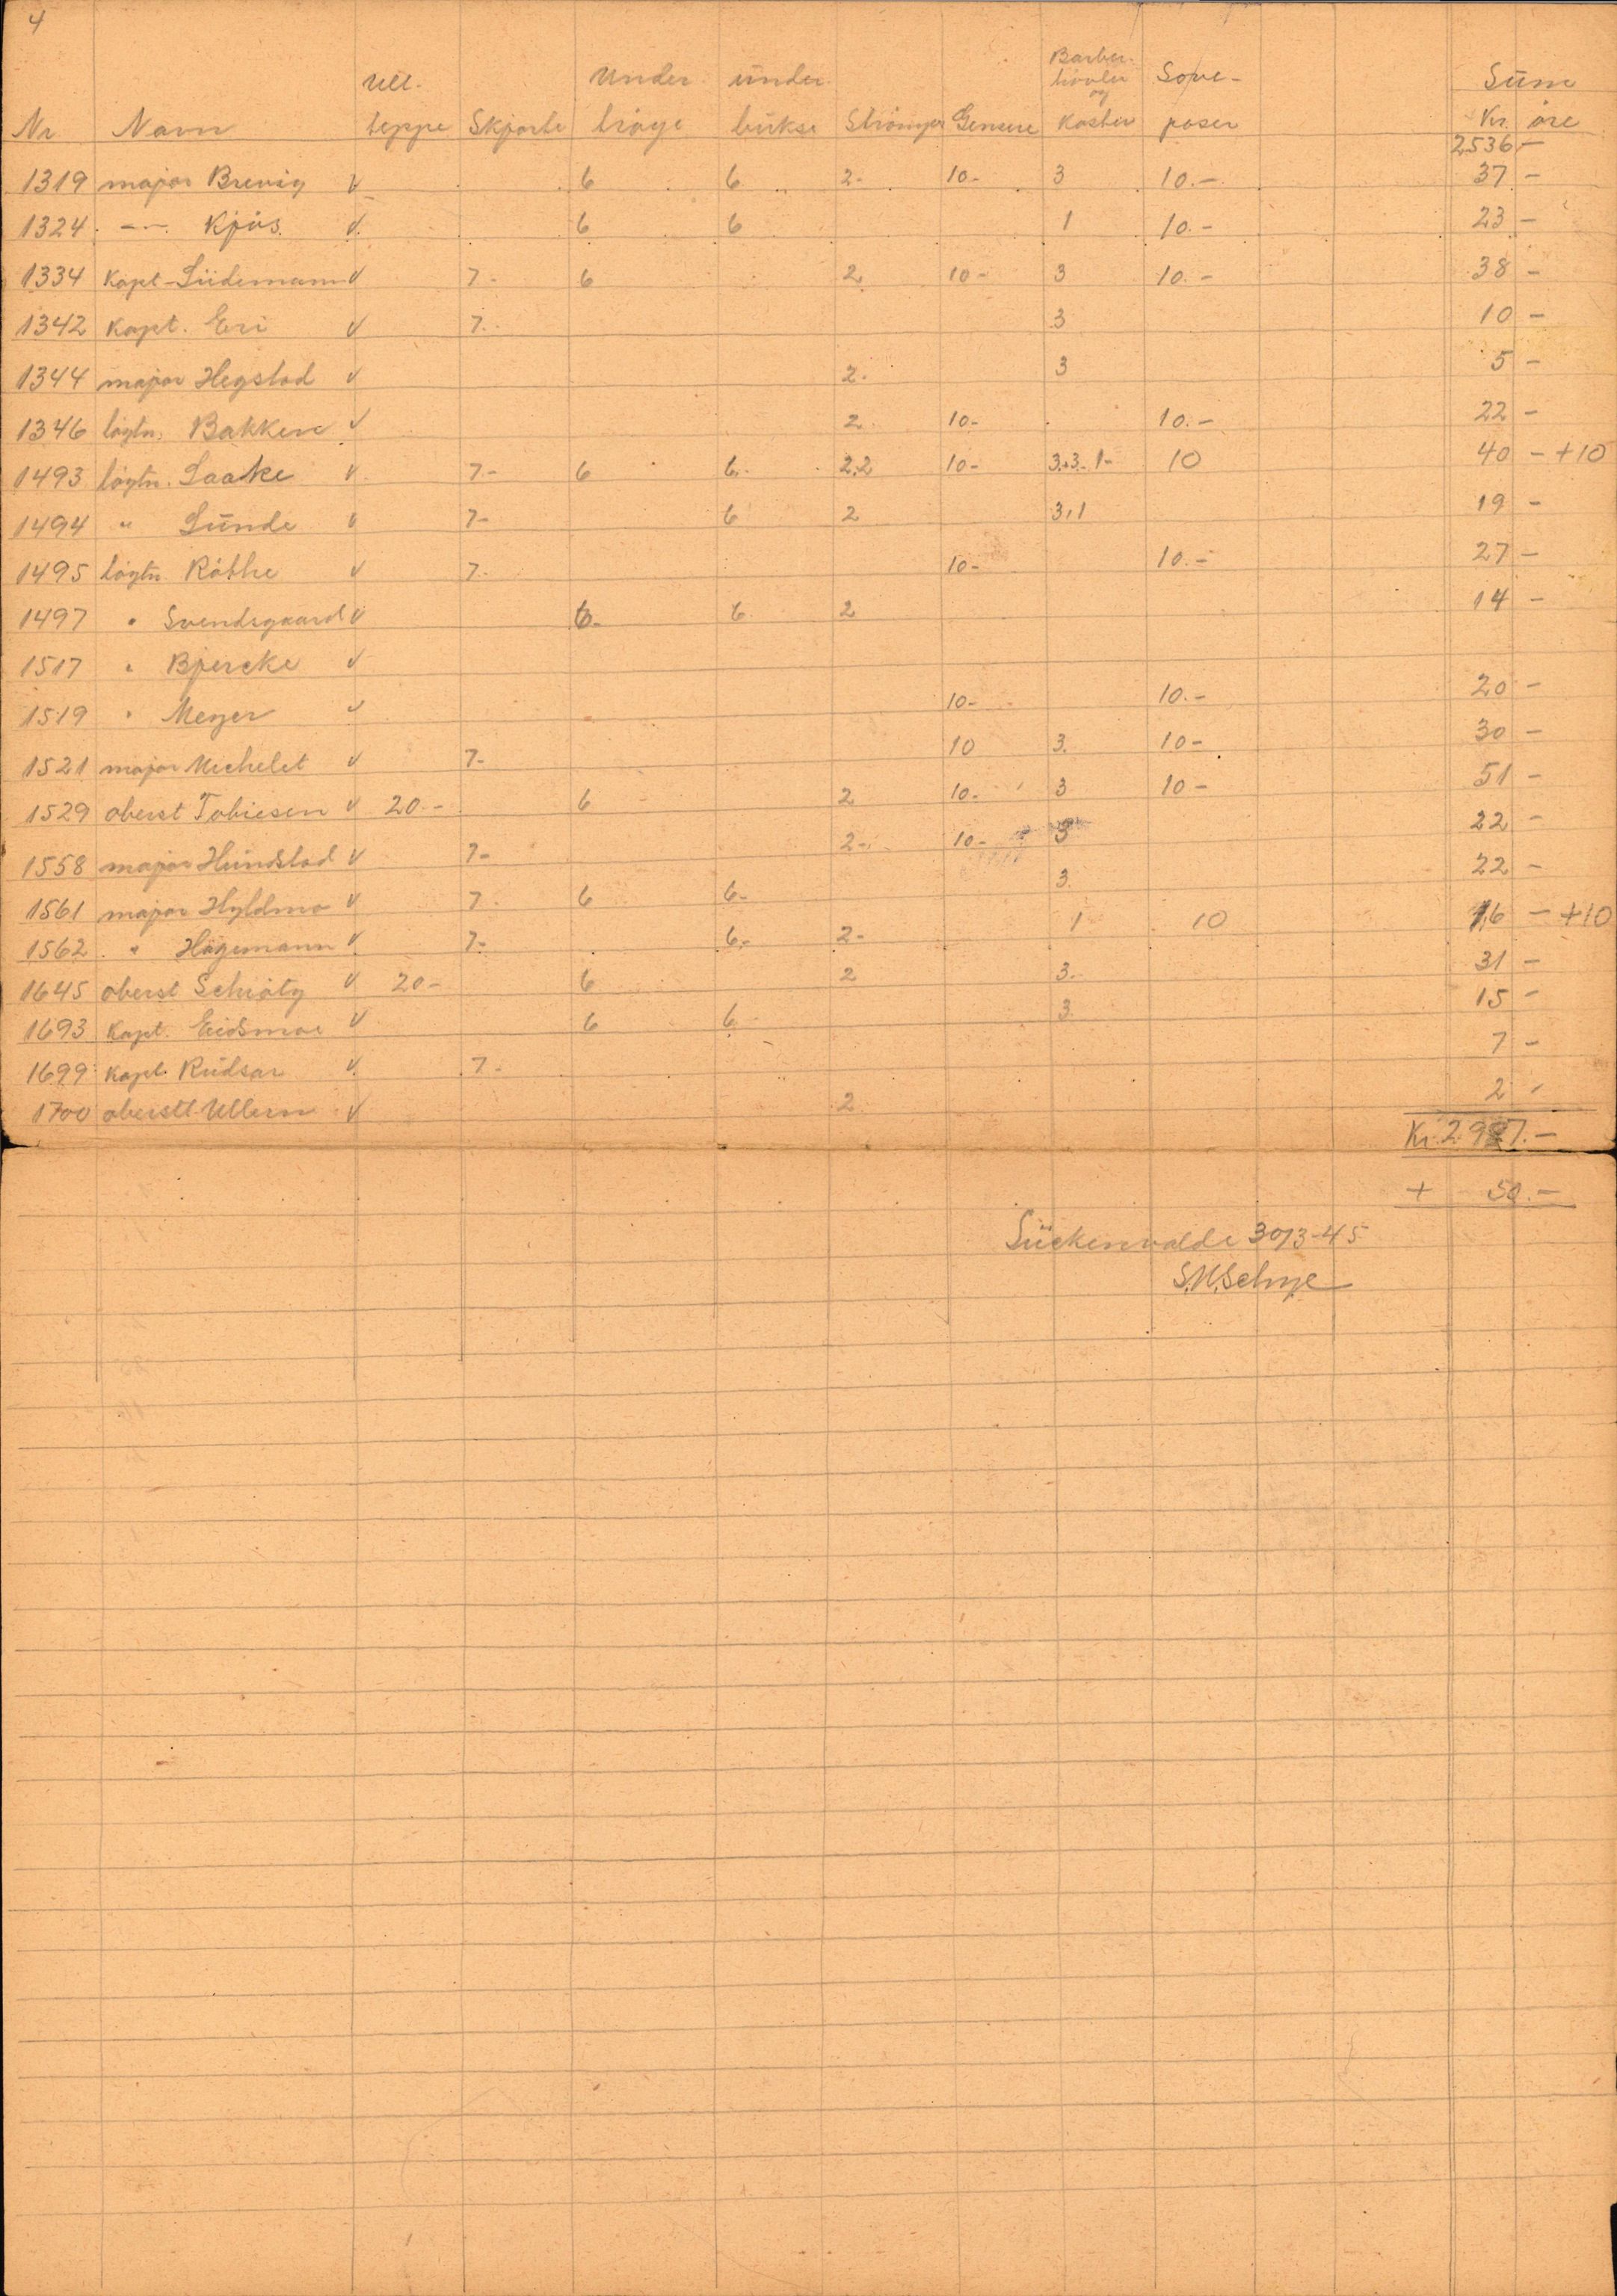 4
Nr Navn Ull- teppe Skjorte Under tröye ünder bükse Strömper Gensere Barber- hövler og Koster Sove- poser Süm Kr. öre
2536.-
1319 major Brevig v 6 6 2- 10- 3 10.- 37 -
1324 -"- Kjüs. v. 6 6 1 10.- 23 -
1334 Kapt. Lüdemann v 7- 6 2 10- 3 10.- 38 -
1342 Kapt. Eri v 7. 3 10 -
1344 major Hegstad v 2. 3 5 -
1346 löytn. Bakken v 2 10- 10.- 22 -
1493 löytn. Laake v. 7- 6 6. 2.2 10- 3+3- 1- 10 40 - +10
1494 " Lünde v 7- 6 2 3,1 19 -
1495 löytn Röthe v 7- 10- 10.- 27 -
1497 " Svendsgaard v 6- 6 2 14 -
1517 " Bjercke v
1519 " Meyer v 10- 10.- 20 -
1521 major Michelet v 7- 10 3. 10- 30 -
1529 oberst Tobiesen v 20.- 6 2 10- 3 10- 51 -
1558 major Hündstad v 7- 2- 10- 3 22 -
1561 major Hyldmo v 7. 6 6- 3. 22 -
1562 " Hagemann v 7- 6.- 2- 1 10 16 - +10
1645 oberst Schiötz v 20- 6 2 3- 31 -
1693 Kapt. Eidsmoe v 6 6 3 15 -
1699 Kapt. Rüdsar v. 7- 7 -
1700 oberstl. Ullern v 2 2 -
Kr. 2987.-
+ 50.-
Lückenwalde 30/3-45
S.N.Schye